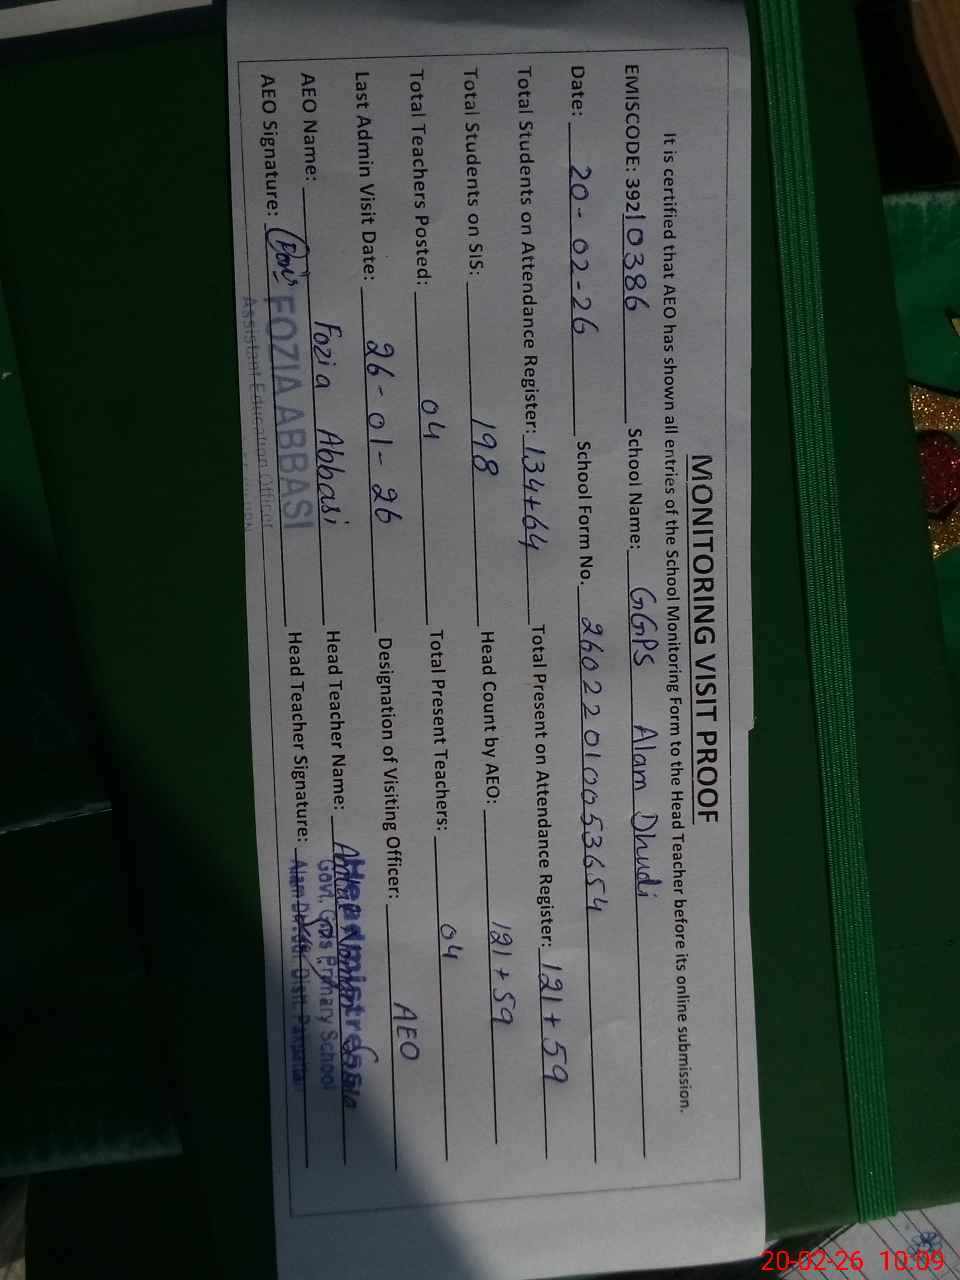 MONITORING VISIT PROOF
It is certified that AEO has shown all entries of the School Monitoring Form to the Head Teacher before its online submission.
EMISCODE: 39210386 School Name: GGPS Alam Dhudi
Date: 20-02-26 School Form No. 26022010053654
Total Students on Attendance Register: 134+64 Total Present on Attendance Register: 121+59
Total Students on SIS: 198 Head Count by AEO: 121+59
Total Teachers Posted: 04 Total Present Teachers: 04
Last Admin Visit Date: 26-01-26 Designation of Visiting Officer: AEO
AEO Name: Fozia Abbasi Head Teacher Name: Headmistress
Govt. Girls Primary School
AEO Signature: FOZIA ABBASI Head Teacher Signature: Alam Distt. Pakpattan
Assistant Education Officer
20-02-26 10:09